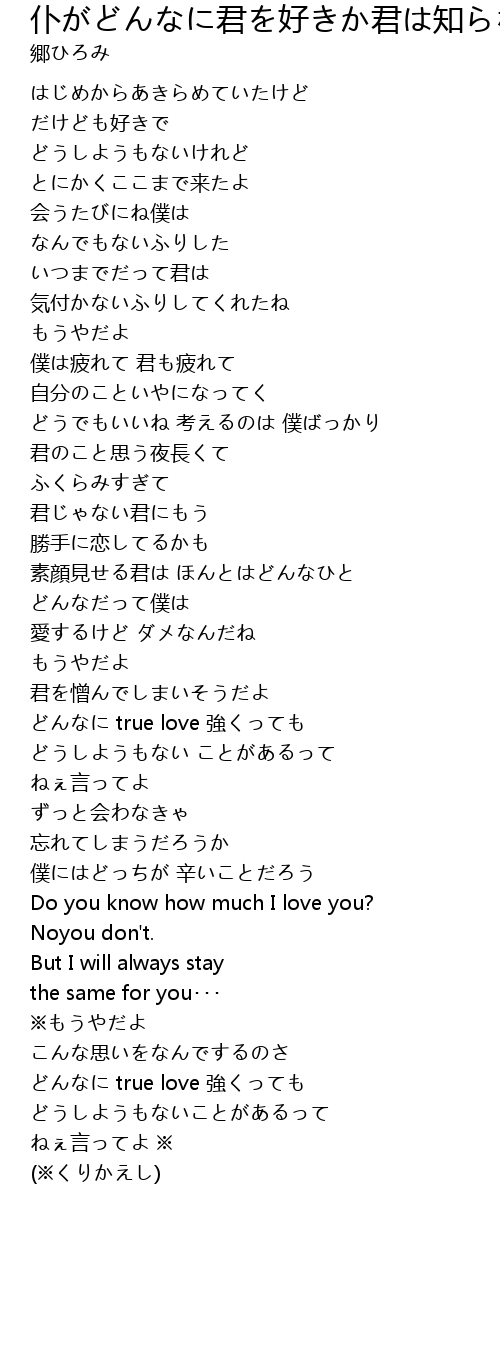 仆がどんなに君を好きか君は知ら
郷ひろみ
はじめからあきらめていたけど
だけども好きで
どうしようもないけれど
とにかくここまで来たよ
会うたびにね僕は
なんでもないふりした
いつまでだって君は
気付かないふりしてくれたね
もうやだよ
僕は疲れて 君も疲れて
自分のこといやになってく
どうでもいいね 考えるのは 僕ばっかり
君のこと思う夜長くて
ふくらみすぎて
君じゃない君にもう
勝手に恋してるかも
素顔見せる君は ほんとはどんなひと
どんなだって僕は
愛するけど ダメなんだね
もうやだよ
君を憎んでしまいそうだよ
どんなに true love 強くっても
どうしようもない ことがあるって
ねぇ言ってよ
ずっと会わなきゃ
忘れてしまうだろうか
僕にはどっちが 辛いことだろう
Do you know how much I love you?
Noyou don't.
But I will always stay
the same for you･･･
※もうやだよ
こんな思いをなんでするのさ
どんなに true love 強くっても
どうしようもないことがあるって
ねぇ言ってよ ※
(※くりかえし)